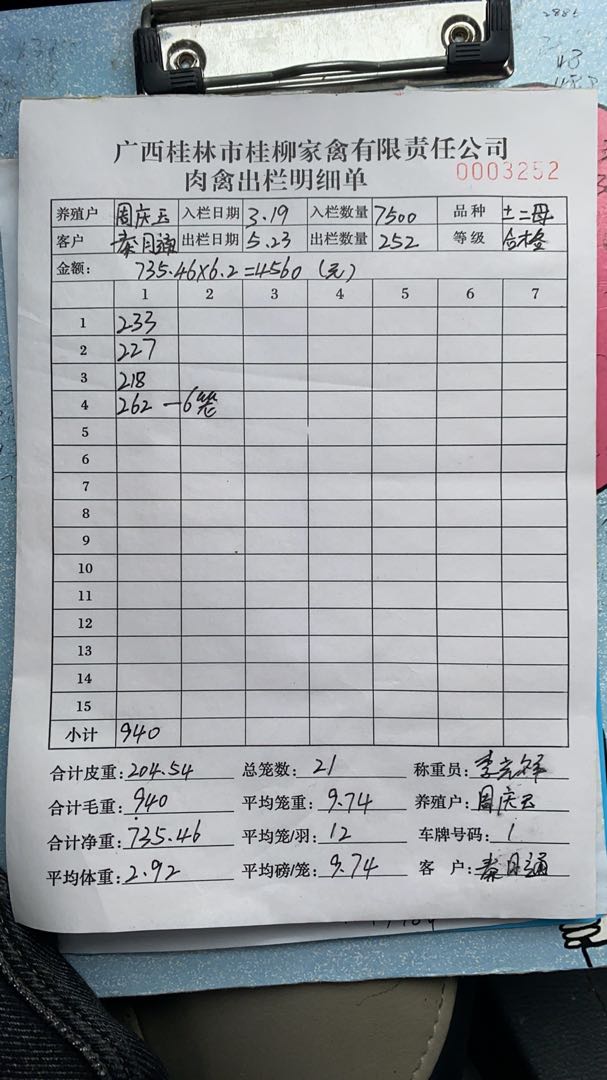 广西桂林市桂柳家禽有限责任公司
肉禽出栏明细单 0003252
养殖户 周庆云 入栏日期 3.19 入栏数量 7500 品种 土二母
客户 秦月通 出栏日期 5.23 出栏数量 252 等级 合格
金额: 735.46×6.2=4560 (元)
1 2 3 4 5 6 7
1 233
2 227
3 218
4 262 —6笼
5
6
7
8
9
10
11
12
13
14
15
小计 940
合计皮重: 204.54 总笼数: 21 称重员:
合计毛重: 940 平均笼重: 9.74 养殖户: 周庆云
合计净重: 735.46 平均笼/羽: 12 车牌号码: 1
平均体重: 2.92 平均磅/笼: 9.74 客 户: 秦月通